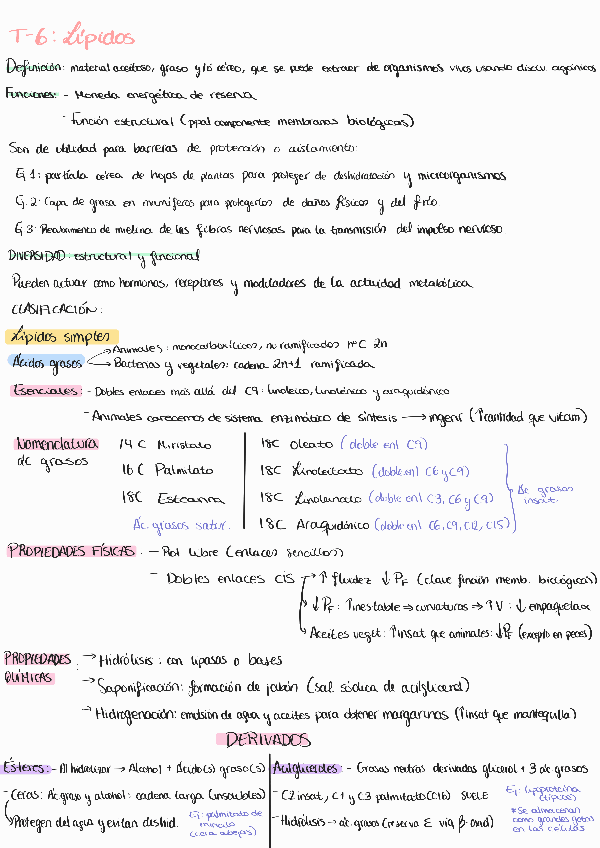 T-6: Lípidos
Definición: material aceitoso, graso y/o céreo, que se puede extraer de organismos vivos usando disolv. orgánicos
Funciones: - Moneda energética de reserva
- Función estructural (ppal componente membranas biológicas)
Son de utilidad para barreras de protección o aislamiento:
Ej 1: partícula cérea de hojas de plantas para proteger de deshidratación y microorganismos
Ej. 2: Capa de grasa en mamíferos para protegerlos de daños físicos y del frío
Ej 3: Recubrimiento de mielina de las fibras nerviosas para la transmisión del impulso nervioso
DIVERSIDAD: estructural y funcional
Pueden actuar como hormonas, receptores y moduladores de la actividad metabólica
CLASIFICACIÓN:
Lípidos simples
Ácidos grasos → Animales: monocarboxílicos, no ramificados nºC 2n
→ Bacterias y vegetales: cadena 2n+1 ramificada
Esenciales: - Dobles enlaces más allá del C9: linoleico, linolénico y araquidónico
- Animales carecemos de sistema enzimático de síntesis → ingerir (↑cantidad que vitam)
Nomenclatura de grasos
14 C Miristato
16 C Palmitato
18C
Ác. grasos satur.
18C Oleato (doble enl C9)
18C (doble enl C6 y C9)
18C (doble enl C3, C6 y C9)
18C Araquidónico (doble enl C6, C9, C12, C15)
Ác grasos insat.
PROPIEDADES FÍSICAS. - Rot libre (enlaces sencillos)
- Dobles enlaces CIS → ↑ fluidez ↓ PF (clave función memb. biológicas)
↓ PF: ↑inestable ⇒ curvaturas ⇒ ↑V : ↓ empaquetam
Aceites veget: ↑insat que animales: ↓PF (excepto en peces)
PROPIEDADES QUÍMICAS: → Hidrólisis: con lipasas o bases
→ Saponificación: formación de jabón (sal sódica de acilglicerol)
→ Hidrogenación: emulsión de agua y aceites para obtener margarinas (↑insat que mantequilla)
DERIVADOS
Ésteres: - Al hidrolizar → Alcohol + Ácido(s) graso(s)
- Ceras: Ác graso y alcohol: cadena larga (insolubles)
Protegen del agua y evitan deshid.
Ej: palmitato de
(cera abejas)
Acilgliceroles - Grasas neutras derivadas glicerol + 3 ác grasos
- C2 insat, C1 y C3 palmitato (C16) SUELE
Ej: lipoproteína
- Hidrólisis → ác. grasos (reserva E vía β-oxid)
* Se almacenan
como grandes gotas
en las células